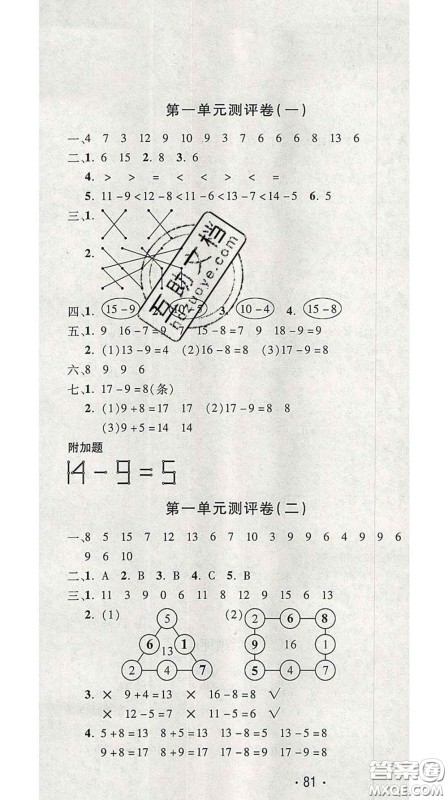 第一单元测评卷(一)
一、4 7 3 12 9 10 9 3 7 6 6 8 13 6
二、1. 6 15 2. 8 3. 6
4. ＞ ＞ ＝ ＜ ＞ ＜ ＜ ＝
5. 11－9＜12－8＜11－6＜11－7＜14－5 6. 5
三、1.
2.
百助文档
四、1. 15－9 5 3. 10－4 4. 15－8
五、1. 9 16－7＝9 5＝8 15－8＝7 9 18－9＝9
2. (1)13－9＝4 (2)16－8＝8
六、8 9 9 6
七、1. 17－9＝8(条)
2. (1)9＋8＝17 17 (2)17－9＝8 8
(3)9＋5＝14 14
附加题
14－9＝5
第一单元测评卷(二)
一、8 5 15 7 12 13 7 6 10 3 9 9 6 4 9 9 6
9 6 10
二、1. A 2. B 3. D 4. C 5. B
三、1. 11 3 9 0 6 11 8 9 12 15 6 13
2. (1) (2)
5 2 6 8
6 13 1 9 16 1
2 4 7 5 4 7
3. × 9＋4＝13 × 16－8＝8 √
× 12－5＝7 × 11－5＝6 √
4. 5＋8＝13 8＋5＝13 13－5＝8 13－8＝5
9＋8＝17 8＋9＝17 17－9＝8 17－8＝9
· 81 ·
答案圈
MXQE.COM